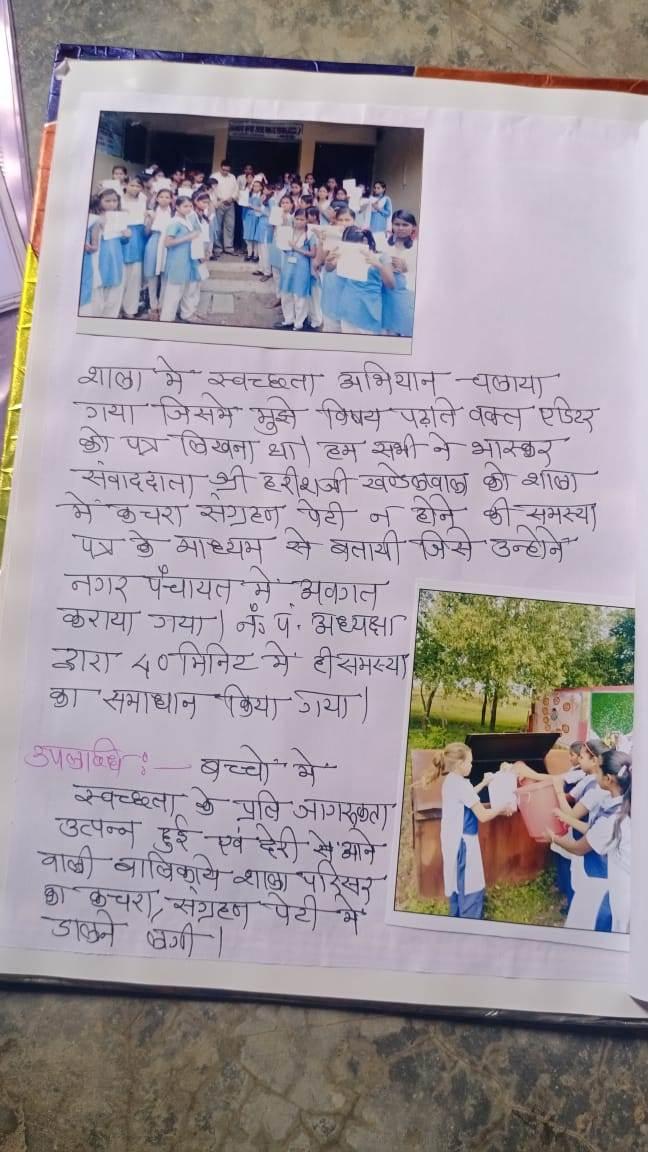 शाला मे स्वच्छता अभियान चलाया
गया जिसमे मुझे विषय पढ़ाते वक्त एडिटर
को पत्र लिखना था। हम सभी ने भास्कर
संवाददाता श्री हरीशजी खण्डेलवाल को शाला
में कचरा संग्रहण पेटी न होने की समस्या
पत्र के माध्यम से बतायी जिसे उन्होने
नगर पंचायत में अवगत
कराया गया। नं. पं. अध्यक्षा
द्वारा 40 मिनिट मे ही समस्या
का समाधान किया गया।
उपलब्धि :— बच्चो मे
स्वच्छता के प्रति जागरूकता
उत्पन्न हुई एवं देरी से आने
वाली बालिकाये शाला परिसर
का कचरा, संग्रहण पेटी मे
डालने लगी।